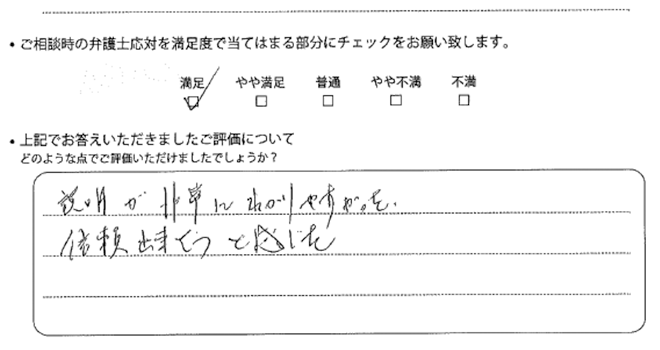 • ご相談時の弁護士応対を満足度で当てはまる部分にチェックをお願い致します。
満足 やや満足 普通 やや不満 不満
• 上記でお答えいただきましたご評価について
どのような点でご評価いただけましたでしょうか？
説明が非常にわかりやすかった。
信頼出来そうと感じた